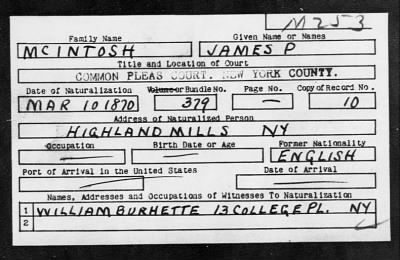 M253
Family Name Given Name or Names
MCINTOSH JAMES P
Title and Location of Court
COMMON PLEAS COURT, NEW YORK COUNTY.
Date of Naturalization Volume or Bundle No. Page No. Copy of Record No.
MAR 10 1870 379 — 10
Address of Naturalized Person
HIGHLAND MILLS NY
Occupation Birth Date or Age Former Nationality
— — ENGLISH
Port of Arrival in the United States Date of Arrival
— —
Names, Addresses and Occupations of Witnesses To Naturalization
1 WILLIAM BURHETTE 13 COLLEGE PL. NY
2